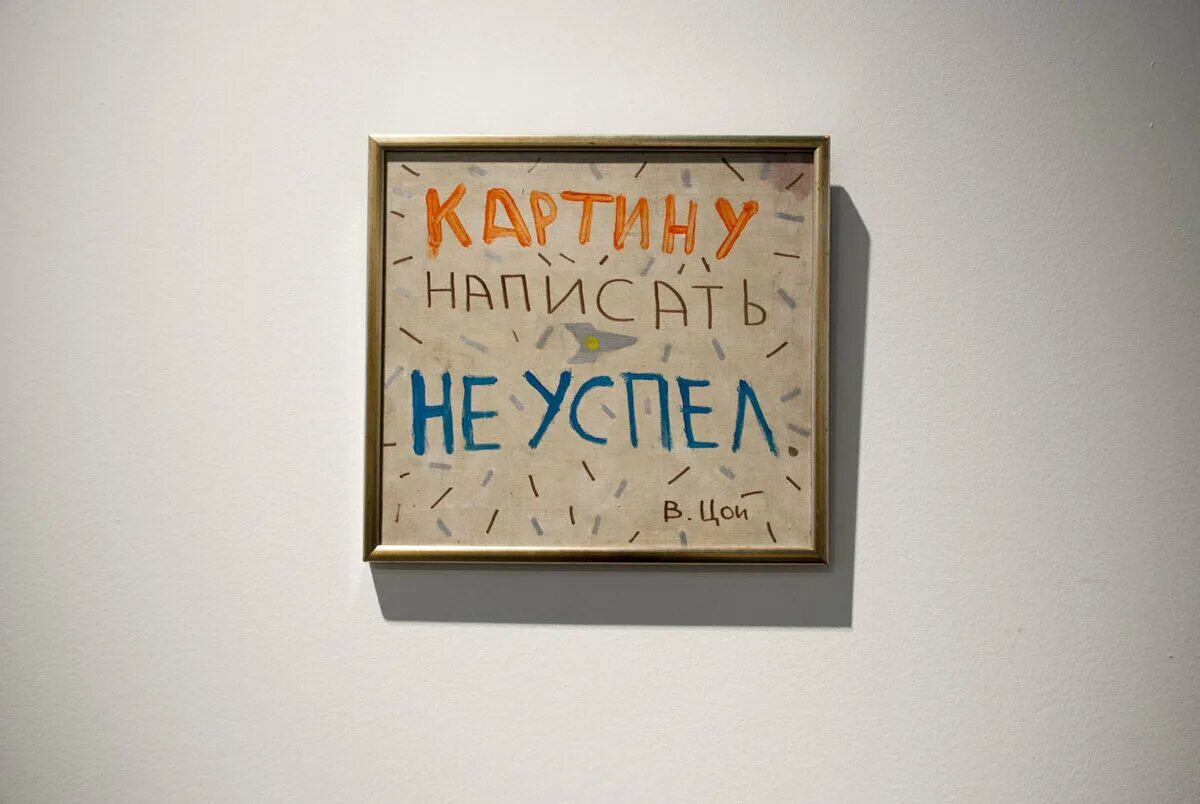 КАРТИНУ
НАПИСАТЬ
НЕ УСПЕЛ
В. Цой